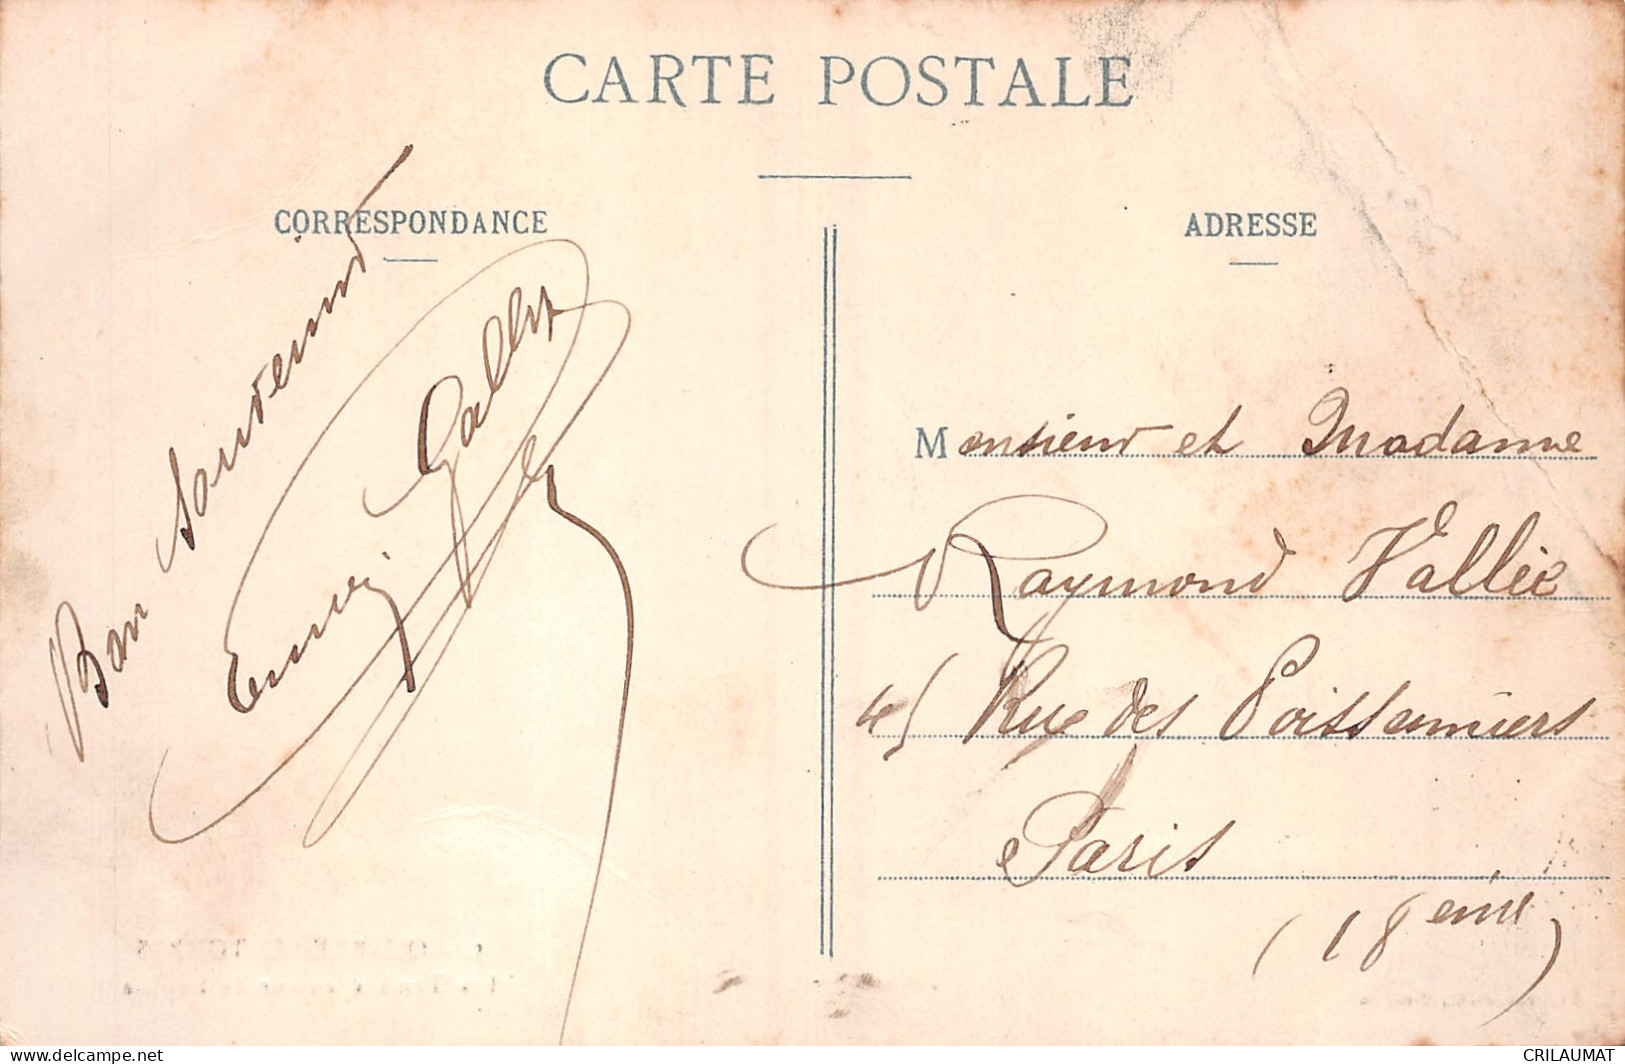 CARTE POSTALE
CORRESPONDANCE
ADRESSE
Bon Souvenir
Gally
Monsieur et Madame
Raymond Vallée
45 Rue des Poissonniers
Paris
(18eme)
CRILAUMAT